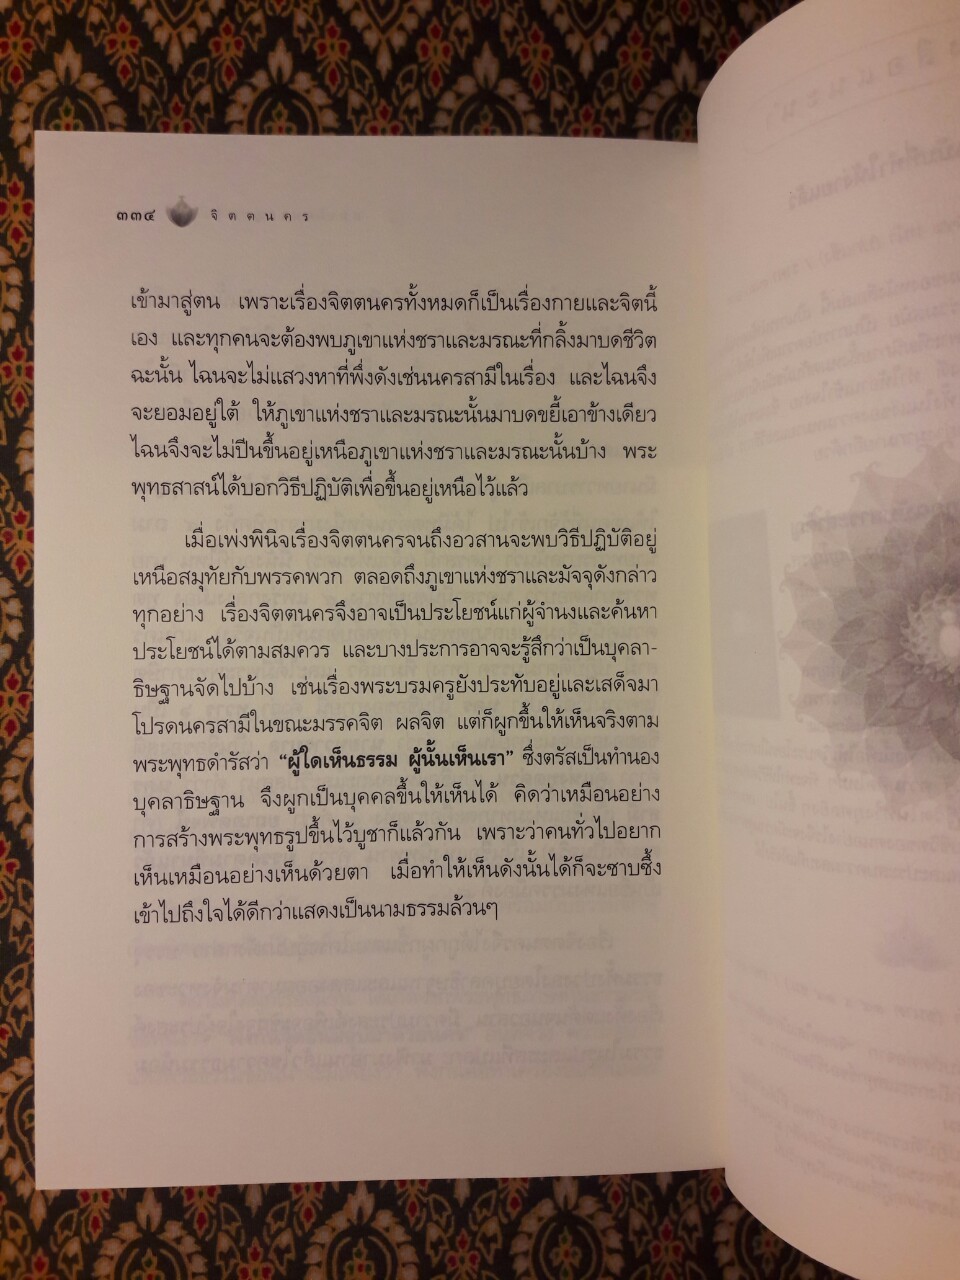 ๓๓๔ จิตตนคร
เข้ามาสู่ตน เพราะเรื่องจิตตนครทั้งหมดก็เป็นเรื่องกายและจิตนี้
เอง และทุกคนจะต้องพบภูเขาแห่งชราและมรณะที่กลิ้งมาบดชีวิต
ฉะนั้น ไฉนจะไม่แสวงหาที่พึ่งดังเช่นนครสามีในเรื่อง และไฉนจึง
จะยอมอยู่ใต้ ให้ภูเขาแห่งชราและมรณะนั้นมาบดขยี้เอาข้างเดียว
ไฉนจึงจะไม่ปีนขึ้นอยู่เหนือภูเขาแห่งชราและมรณะนั้นบ้าง พระ
พุทธสาสน์ได้บอกวิธีปฏิบัติเพื่อขึ้นอยู่เหนือไว้แล้ว
เมื่อเพ่งพินิจเรื่องจิตตนครจนถึงอวสานจะพบวิธีปฏิบัติอยู่
เหนือสมุทัยกับพรรคพวก ตลอดถึงภูเขาแห่งชราและมัจจุดังกล่าว
ทุกอย่าง เรื่องจิตตนครจึงอาจเป็นประโยชน์แก่ผู้จำนงและค้นหา
ประโยชน์ได้ตามสมควร และบางประการอาจจะรู้สึกว่าเป็นบุคลา-
ธิษฐานจัดไปบ้าง เช่นเรื่องพระบรมครูยังประทับอยู่และเสด็จมา
โปรดนครสามีในขณะมรรคจิต ผลจิต แต่ก็ผูกขึ้นให้เห็นจริงตาม
พระพุทธดำรัสว่า “ผู้ใดเห็นธรรม ผู้นั้นเห็นเรา” ซึ่งตรัสเป็นทำนอง
บุคลาธิษฐาน จึงผูกเป็นบุคคลขึ้นให้เห็นได้ คิดว่าเหมือนอย่าง
การสร้างพระพุทธรูปขึ้นไว้บูชาก็แล้วกัน เพราะว่าคนทั่วไปอยาก
เห็นเหมือนอย่างเห็นด้วยตา เมื่อทำให้เห็นดังนั้นได้ก็จะซาบซึ้ง
เข้าไปถึงใจได้ดีกว่าแสดงเป็นนามธรรมล้วนๆ